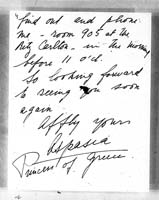 find out and phone
me - room 905 at the
Ritz Carlton - in the morning
before 11 o'cl.
So looking forward
to seeing you soon
again.
Affly yours
Aspasia
Princess of Greece.